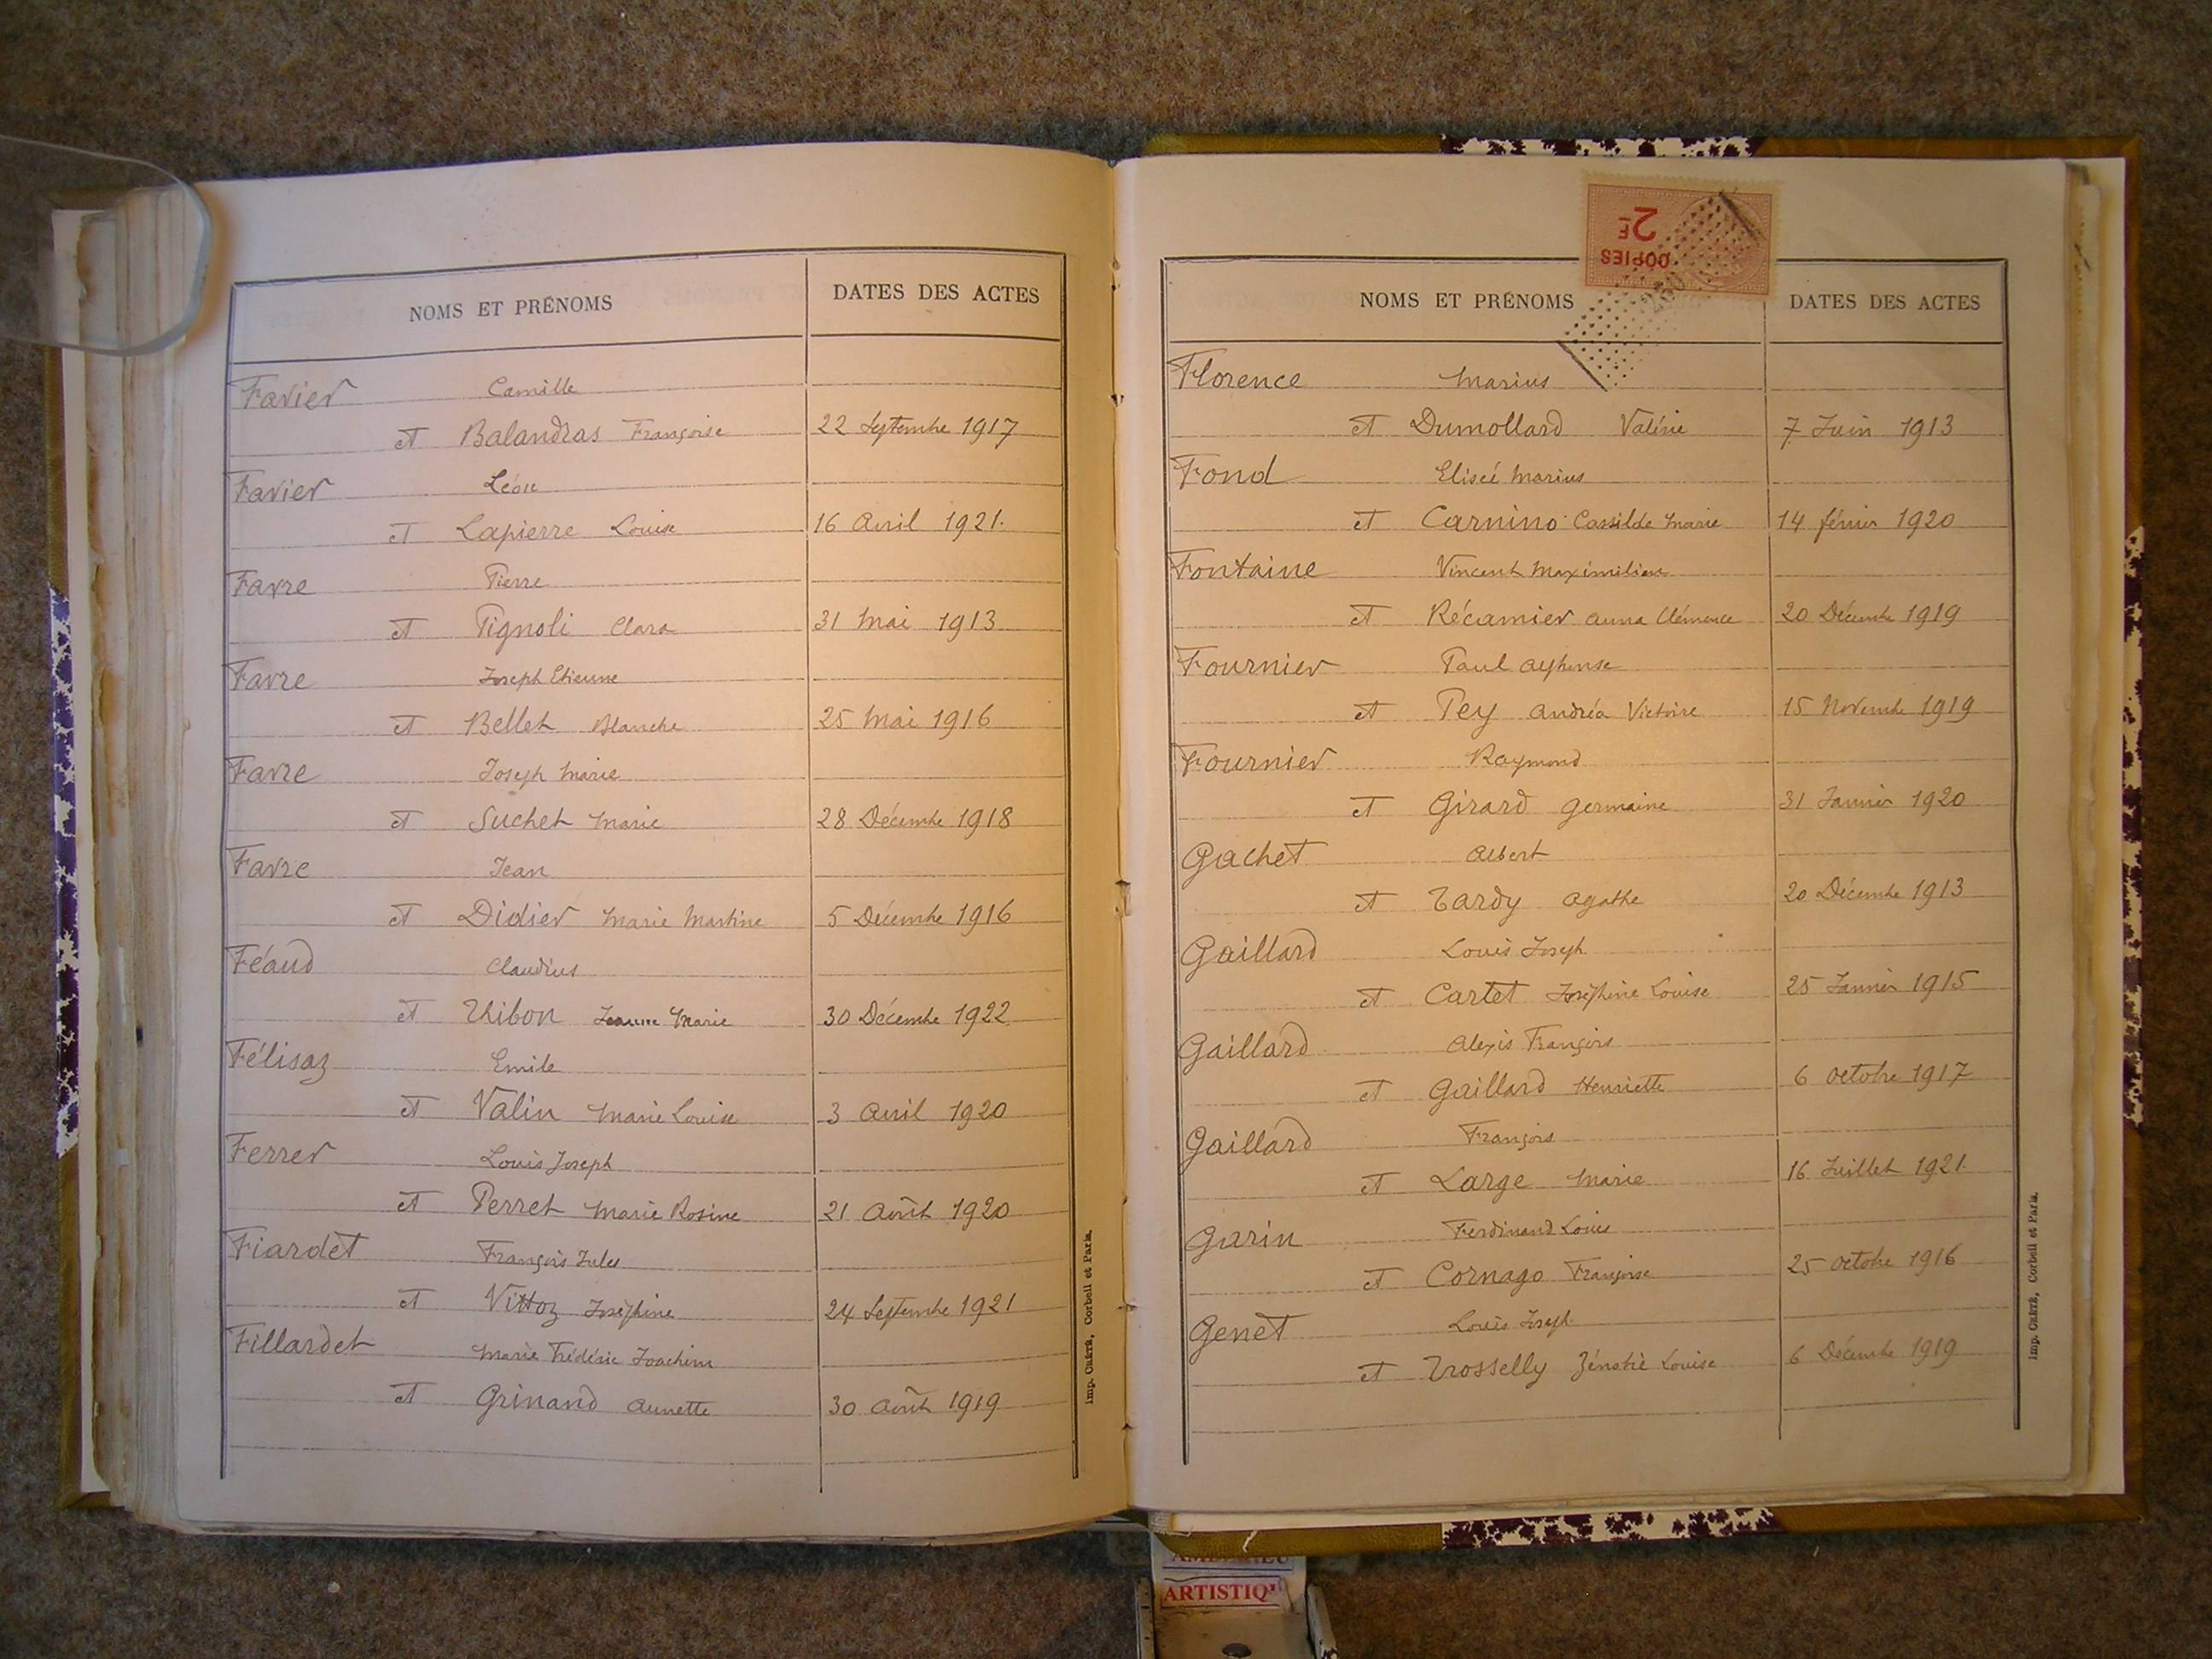 NOMS ET PRÉNOMS DATES DES ACTES
Favier Camille
et Balandras Françoise 22 Septembre 1917
Favier Léon
et Lapierre Louise 16 Avril 1921.
Favre Pierre
et Pignoli Clara 31 Mai 1913
Favre Joseph Etienne
et Bellet Blanche 25 Mai 1916
Favre Joseph Marie
et Suchet Marie 28 Décembre 1918
Favre Jean
et Didier Marie Martine 5 Décembre 1916
Féaud Claudius
et Thibon Jeanne Marie 30 Décembre 1922
Félisaz Emile
et Valin Marie Louise 3 Avril 1920
Ferrer Louis Joseph
et Perret Marie Rosine 21 Août 1920
Fiardet François Jules
et Vittoz Joséphine 24 Septembre 1921
Fillardet Marie Frédéric Joachim
et Grinand Annette 30 Août 1919
Imp. CRÉTÉ, Corbeil et Paris.
COPIES
2F
NOMS ET PRÉNOMS DATES DES ACTES
Florence Marius
et Dumollard Valérie 7 Juin 1913
Fond Eliseé Marius
et Carnino Cassilde Marie 14 février 1920
Fontaine Vincent Maximilien
et Récamier Anna Clémence 20 Décembre 1919
Fournier Paul Alphonse
et Pey Andréa Victoire 15 Novembre 1919
Fournier Raymond
et Girard Germaine 31 Janvier 1920
Gachet Albert
et Tardy Agathe 20 Décembre 1913
Gaillard Louis Joseph
et Cartet Joséphine Louise 25 Janvier 1915
Gaillard Alexis François
et Gaillard Henriette 6 octobre 1917
Gaillard François
et Large Marie 16 Juillet 1921.
Garin Ferdinand Louis
et Cornago Françoise 25 octobre 1916
Genet Louis Joseph
et Trosselly Louise 6 Décembre 1919
Imp. CRÉTÉ, Corbeil et Paris.
ARTISTIQ